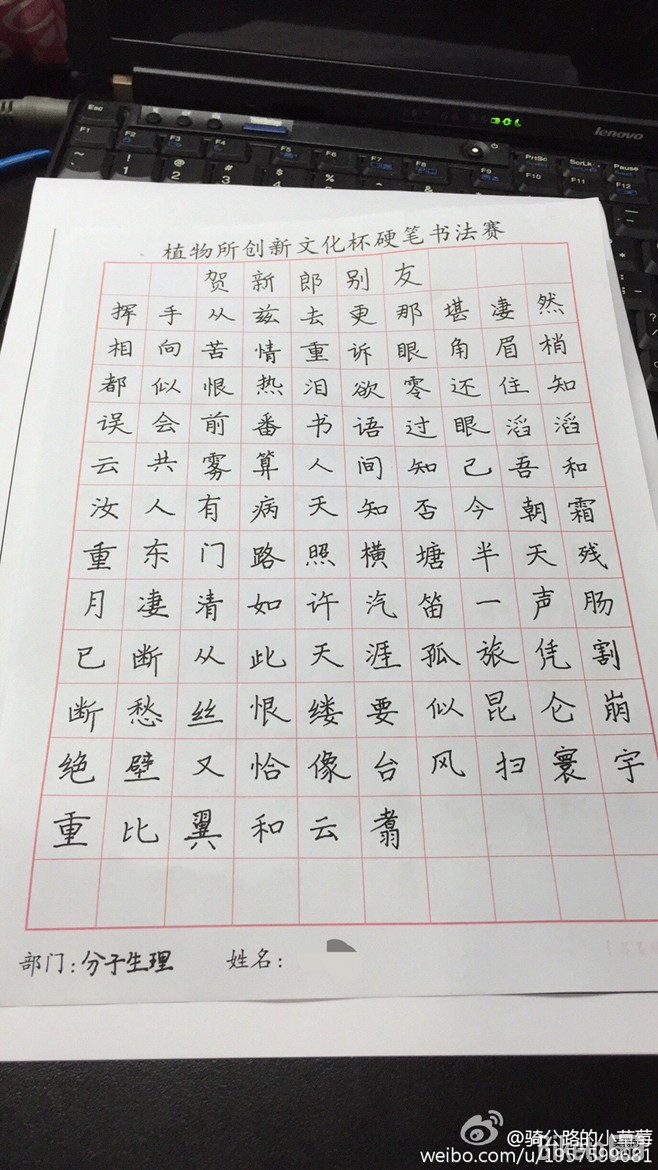 Esc
F1 F2 F3 F4 F5 F6 F7 F8 F9 F12
PrtSc ScrLk Pause
lenovo
植物所创新文化杯硬笔书法赛
贺新郎别友
挥手从兹去更那堪凄然
相向苦情重诉眼角眉梢
都似恨热泪欲零还住知
误会前番书语过眼滔滔
云共雾算人间知己吾和
汝人有病天知否今朝霜
重东门路照横塘半天残
月凄清如许汽笛一声肠
已断从此天涯孤旅凭割
断愁丝恨缕要似昆仑崩
绝壁又恰像台风扫寰宇
重比翼和云翥
部门:分子生理 姓名:
@骑公路的小草莓
weibo.com/u/1957599681